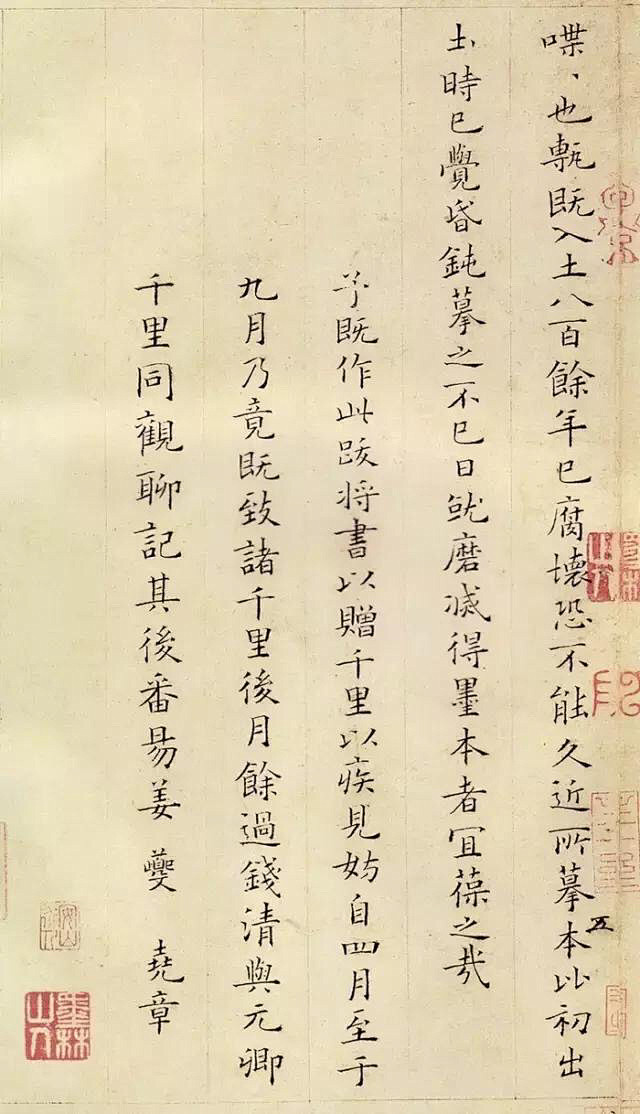 喋、也甎既入土八百餘年已腐壞恐不能久近所摹本五比初出
土時已覺昏鈍摹之不已日就磨滅得墨本者宜葆之哉
予既作此跋将書以贈千里以疾見妨自四月至于
九月乃竟既致諸千里後月餘過錢清與元卿
千里同觀聊記其後番昜姜夔 堯章
墨林山人